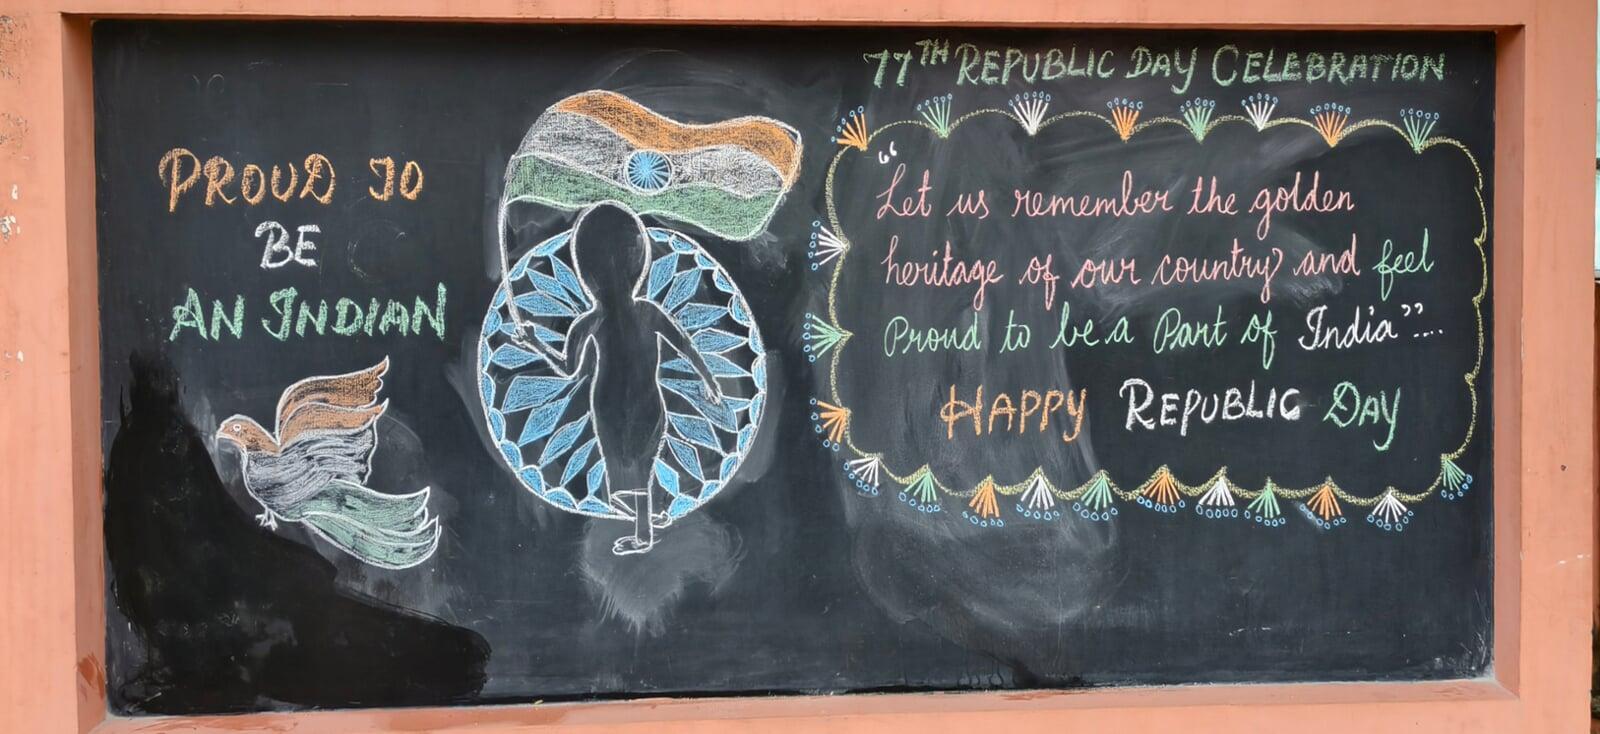 PROUD TO
BE
AN INDIAN
77TH REPUBLIC DAY CELEBRATION
“Let us remember the golden
heritage of our country and feel
Proud to be a Part of India”....
HAPPY REPUBLIC DAY